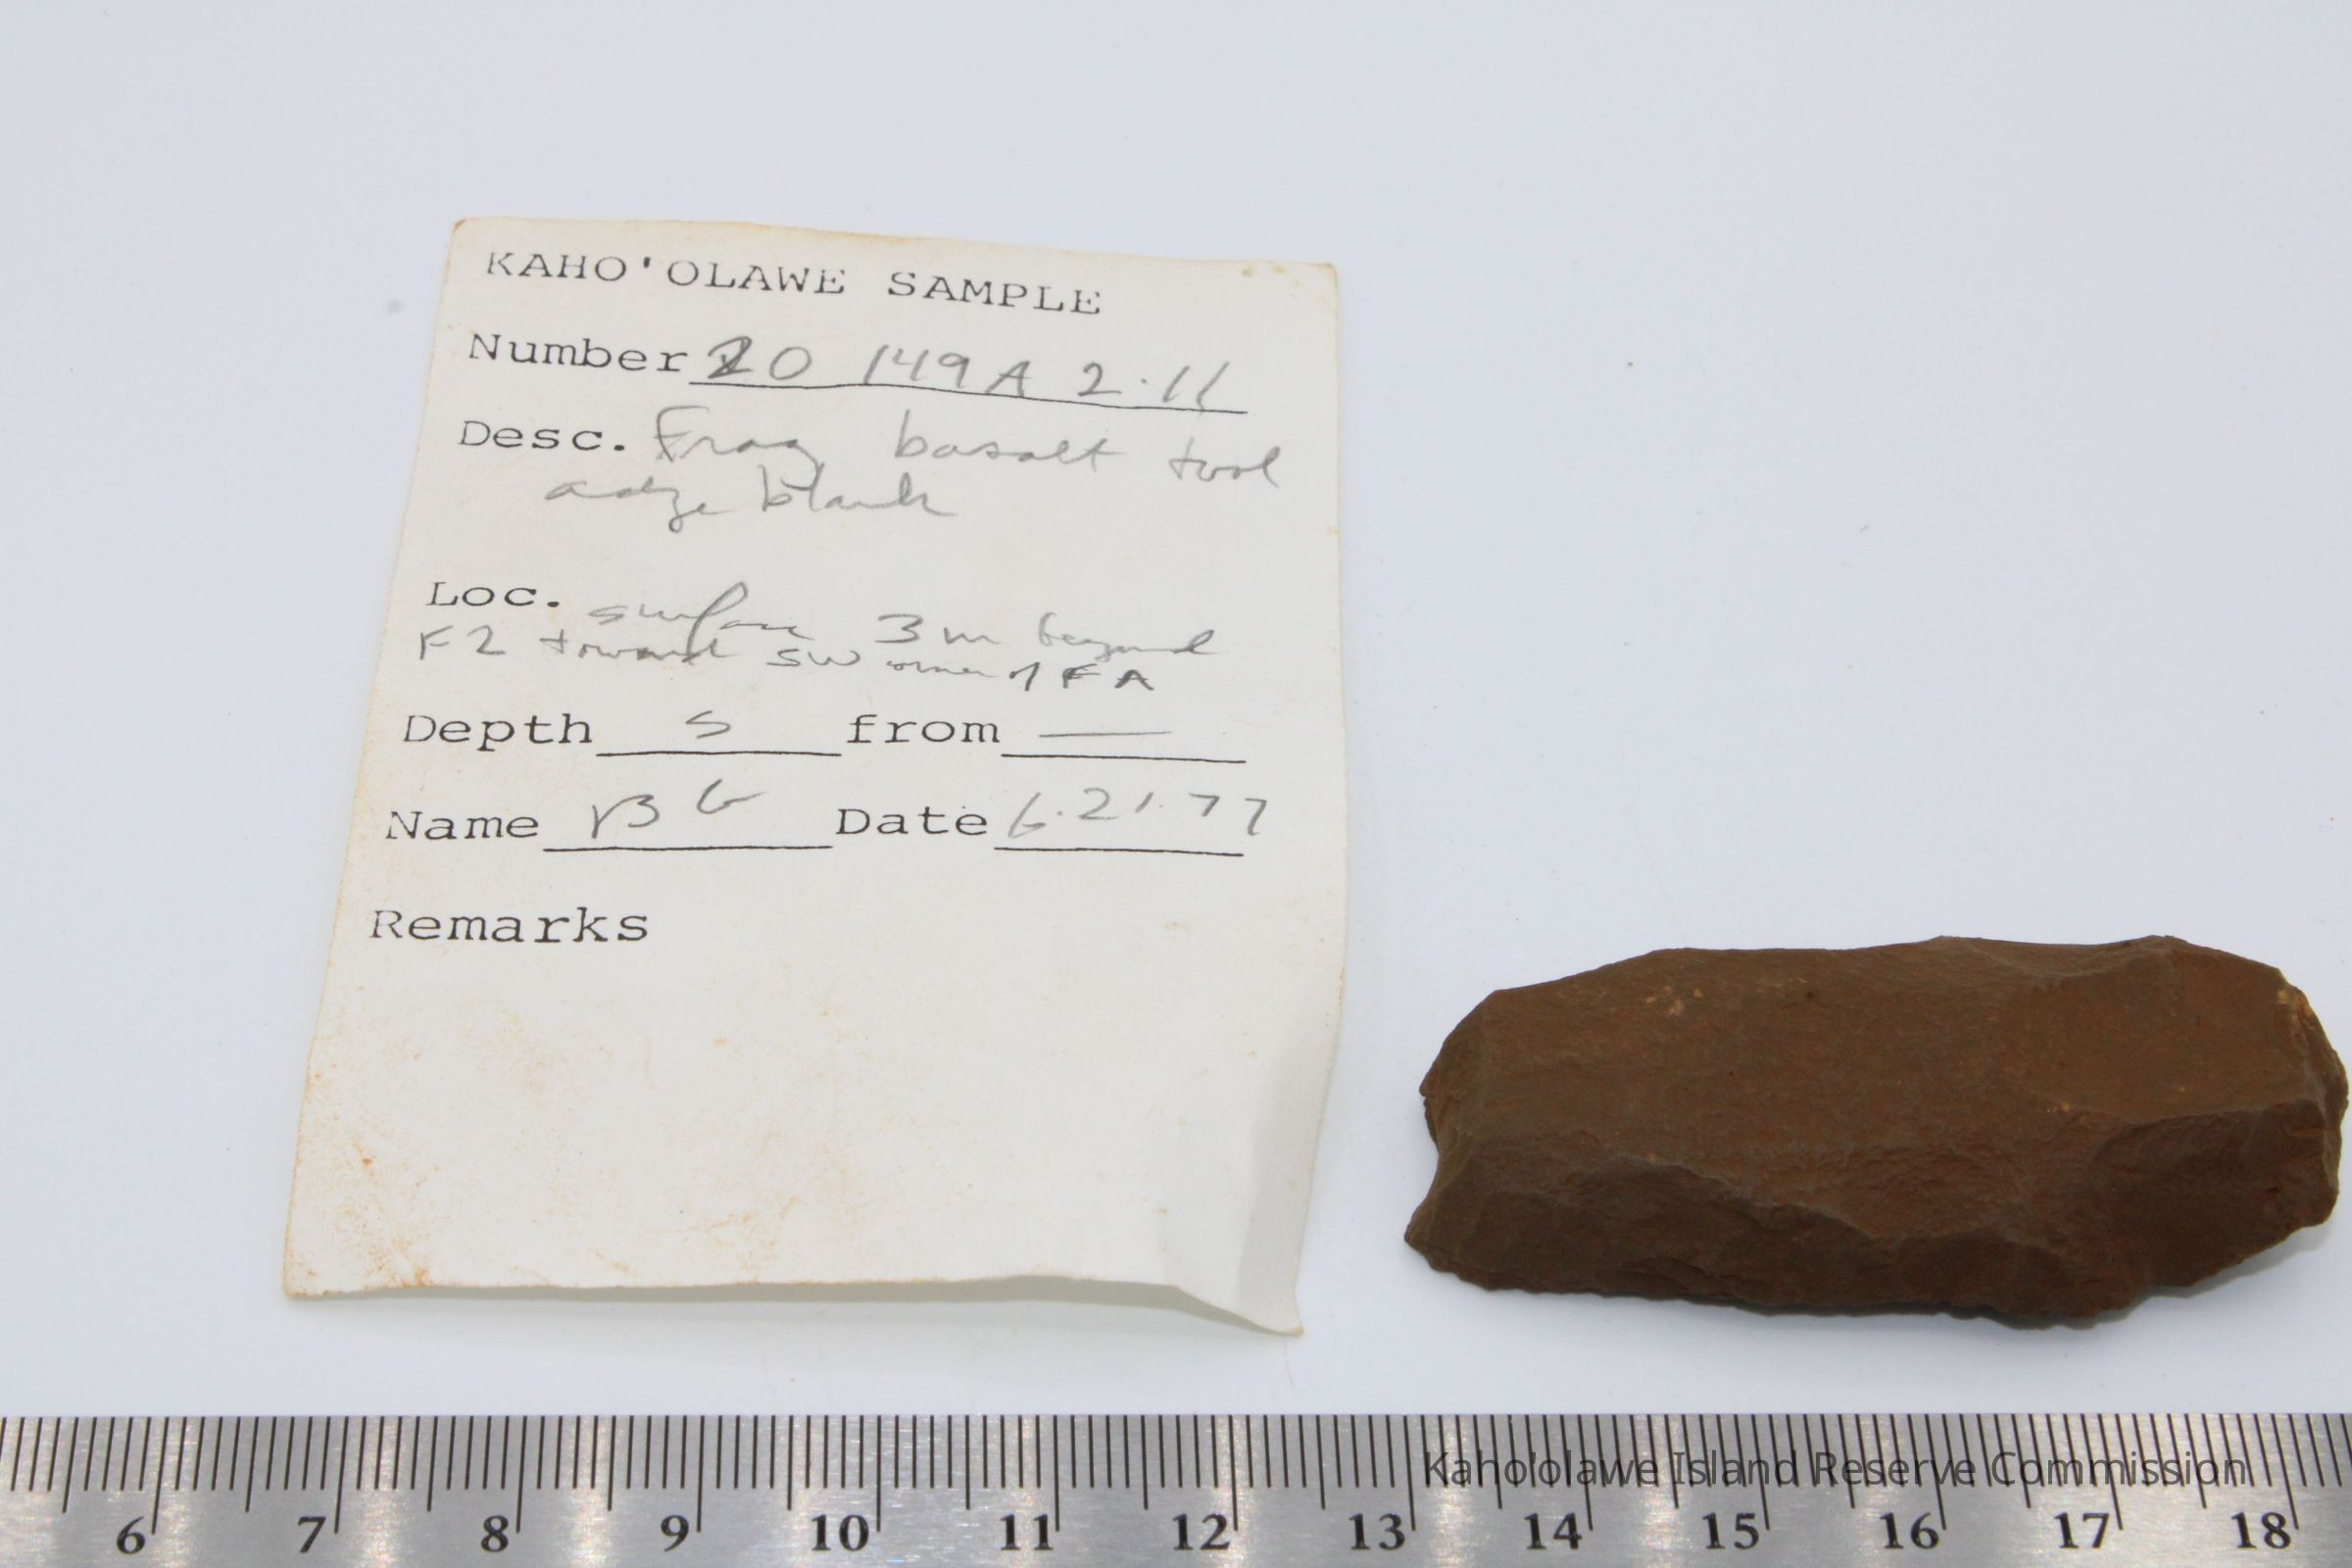 KAHO'OLAWE SAMPLE
Number 20 149A 2.11
Desc. Frag basalt tool
adze blank
Loc. surface 3m beyond
F2 toward SW corner of FA
Depth S from —
Name BG Date 6.21.77
Remarks
Kaho'olawe Island Reserve Commission
6 7 8 9 10 11 12 13 14 15 16 17 18